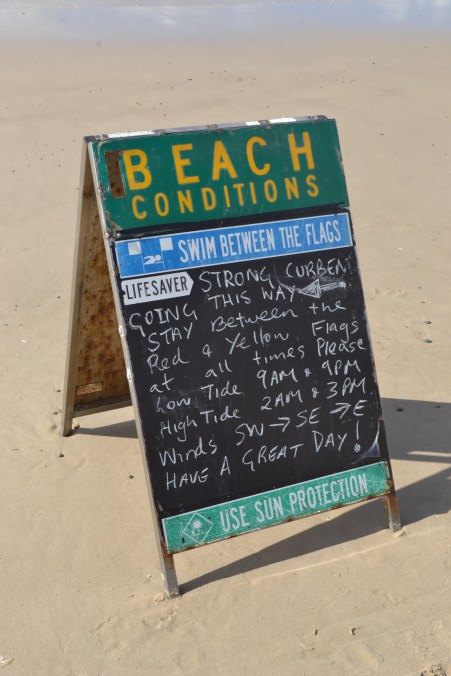 BEACH
CONDITIONS
SWIM BETWEEN THE FLAGS
LIFESAVER
STRONG CURRENT
GOING THIS WAY
STAY Between the
Red & Yellow Flags
at all times Please
Low Tide 9AM & 9PM
High Tide 2AM & 3PM
Winds SW → SE → E
HAVE A GREAT DAY!
USE SUN PROTECTION